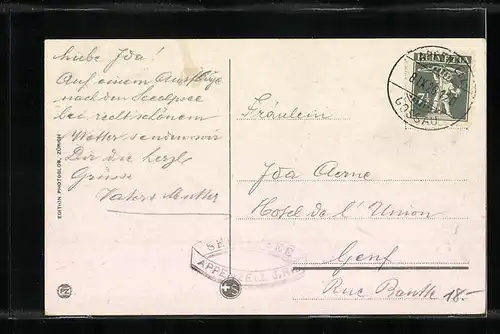 Liebe Ida!
Auf einem Ausflüge
nach dem Seealpsee
bei recht schönem
Wetter senden wir
Dir die herzl.
Grüsse
Vater u Mutter
EDITION PHOTOGLOB, ZÜRICH
HELVETIA
GOSSAU
Fräulein
Ida Aerne
Hotel de l'Union
Genf
Rue
18.-
APPENZELL J.RH.
PZ